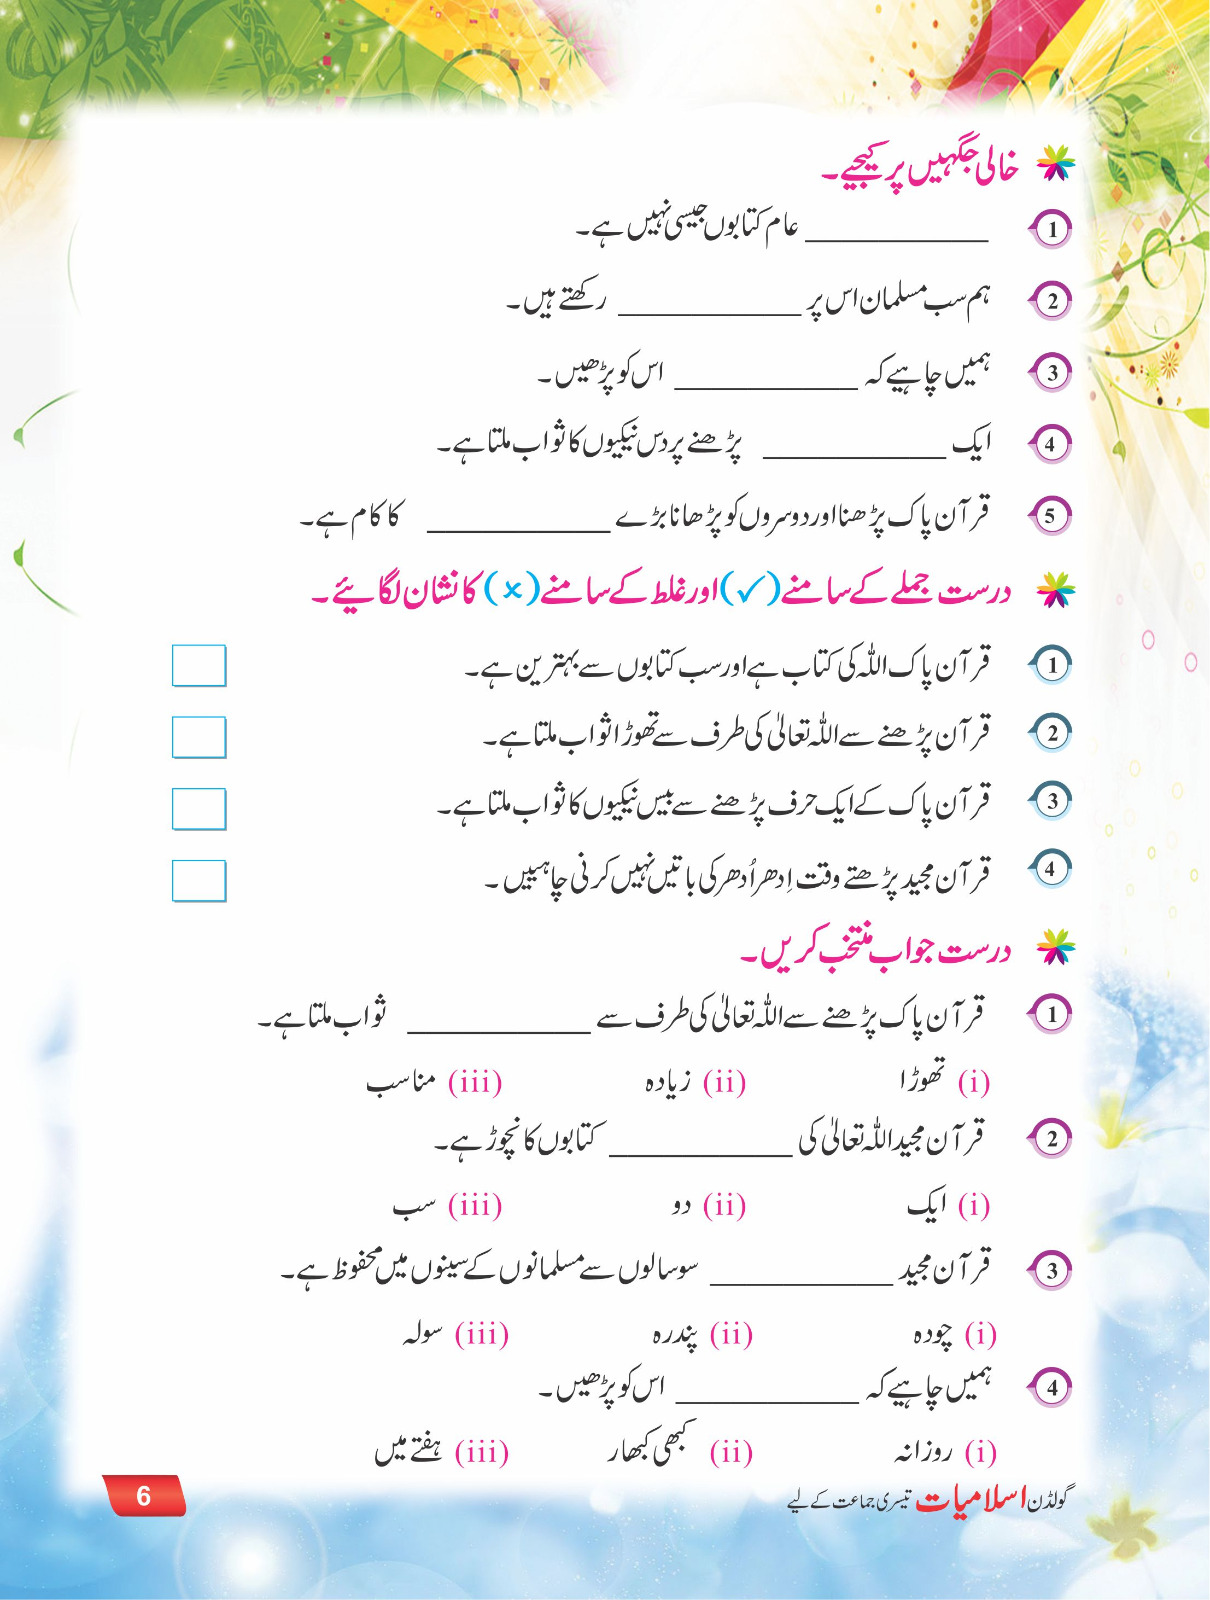 خالی جگہیں پر کیجیے۔
1 ____________ عام کتابوں جیسی نہیں ہے۔
2 ہم سب مسلمان اس پر ____________ رکھتے ہیں۔
3 ہمیں چاہیے کہ ____________ اس کو پڑھیں۔
4 ایک ____________ پڑھنے پر دس نیکیوں کا ثواب ملتا ہے۔
5 قرآن پاک پڑھنا اور دوسروں کو پڑھانا بڑے ____________ کا کام ہے۔
درست جملے کے سامنے (✓) اور غلط کے سامنے (×) کا نشان لگائیے۔
1 قرآن پاک اللہ کی کتاب ہے اور سب کتابوں سے بہترین ہے۔
2 قرآن پڑھنے سے اللہ تعالیٰ کی طرف سے تھوڑا ثواب ملتا ہے۔
3 قرآن پاک کے ایک حرف پڑھنے سے بیس نیکیوں کا ثواب ملتا ہے۔
4 قرآن مجید پڑھتے وقت اِدھر اُدھر کی باتیں نہیں کرنی چاہییں۔
درست جواب منتخب کریں۔
1 قرآن پاک پڑھنے سے اللہ تعالیٰ کی طرف سے ____________ ثواب ملتا ہے۔
(i) تھوڑا (ii) زیادہ (iii) مناسب
2 قرآن مجید اللہ تعالیٰ کی ____________ کتابوں کا نچوڑ ہے۔
(i) ایک (ii) دو (iii) سب
3 قرآن مجید ____________ سو سالوں سے مسلمانوں کے سینوں میں محفوظ ہے۔
(i) چودہ (ii) پندرہ (iii) سولہ
4 ہمیں چاہیے کہ ____________ اس کو پڑھیں۔
(i) روزانہ (ii) کبھی کبھار (iii) ہفتے میں
گولڈن اسلامیات تیسری جماعت کے لیے
6